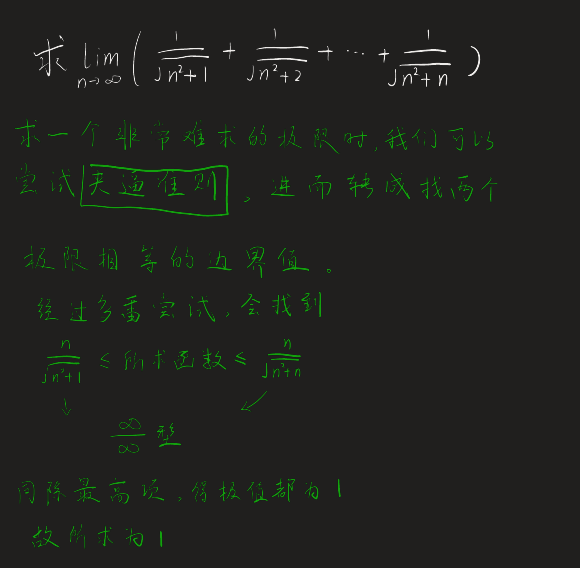 求 lim n→∞ ( 1/√(n²+1) + 1/√(n²+2) + ⋯ + 1/√(n²+n) )
求一个非常难求的极限时,我们可以
尝试夹逼准则,进而转成找两个
极限相等的边界值。
经过多番尝试,会找到
n/√(n²+1) ≤ 所求函数 ≤ n/√(n²+n)
↓ ↙
∞/∞ 型
同除最高项,得极值都为1
故所求为1